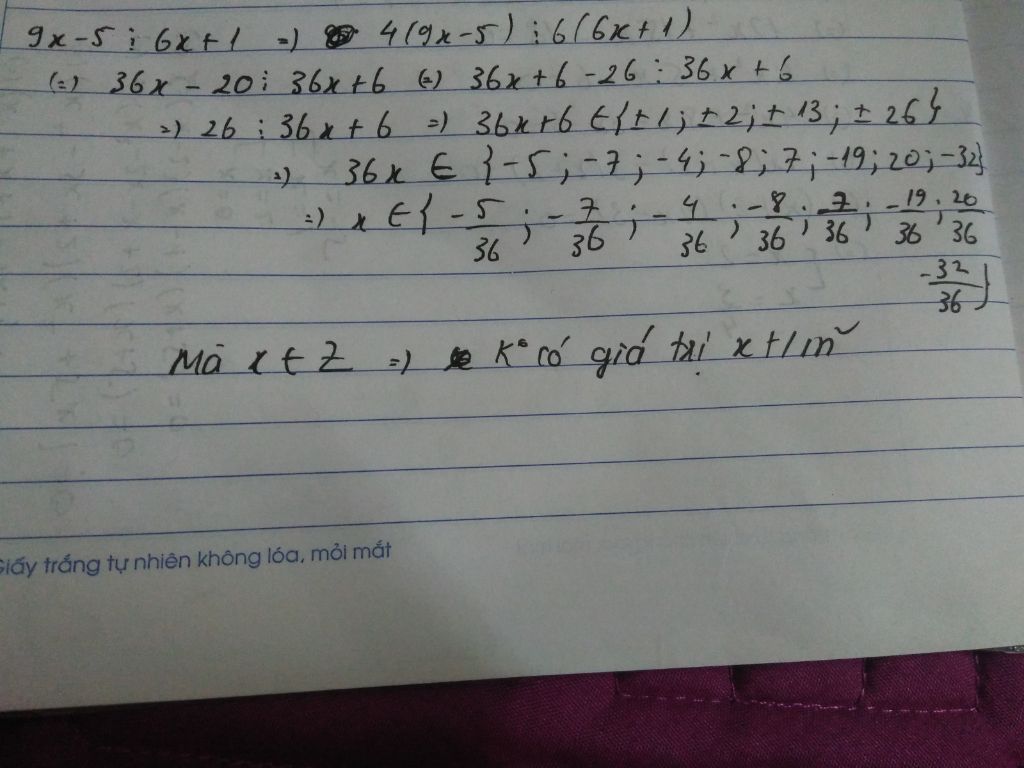 9x-5 ⋮ 6x+1 => 4(9x-5) ⋮ 6(6x+1)
(=) 36x - 20 ⋮ 36x+6 (=) 36x+6 -26 ⋮ 36x+6
=) 26 ⋮ 36x+6 =) 36x+6 ∈ {±1; ±2; ±13; ±26}
=) 36x ∈ {-5; -7; -4; -8; 7; -19; 20; -32}
=) x ∈ { -5/36 ; -7/36 ; -4/36 ; -8/36 ; 7/36 ; -19/36 ; 20/36
-32/36 }
Mà x ∈ Z =) K° có giá trị x t/m
Giấy trắng tự nhiên không lóa, mỏi mắt